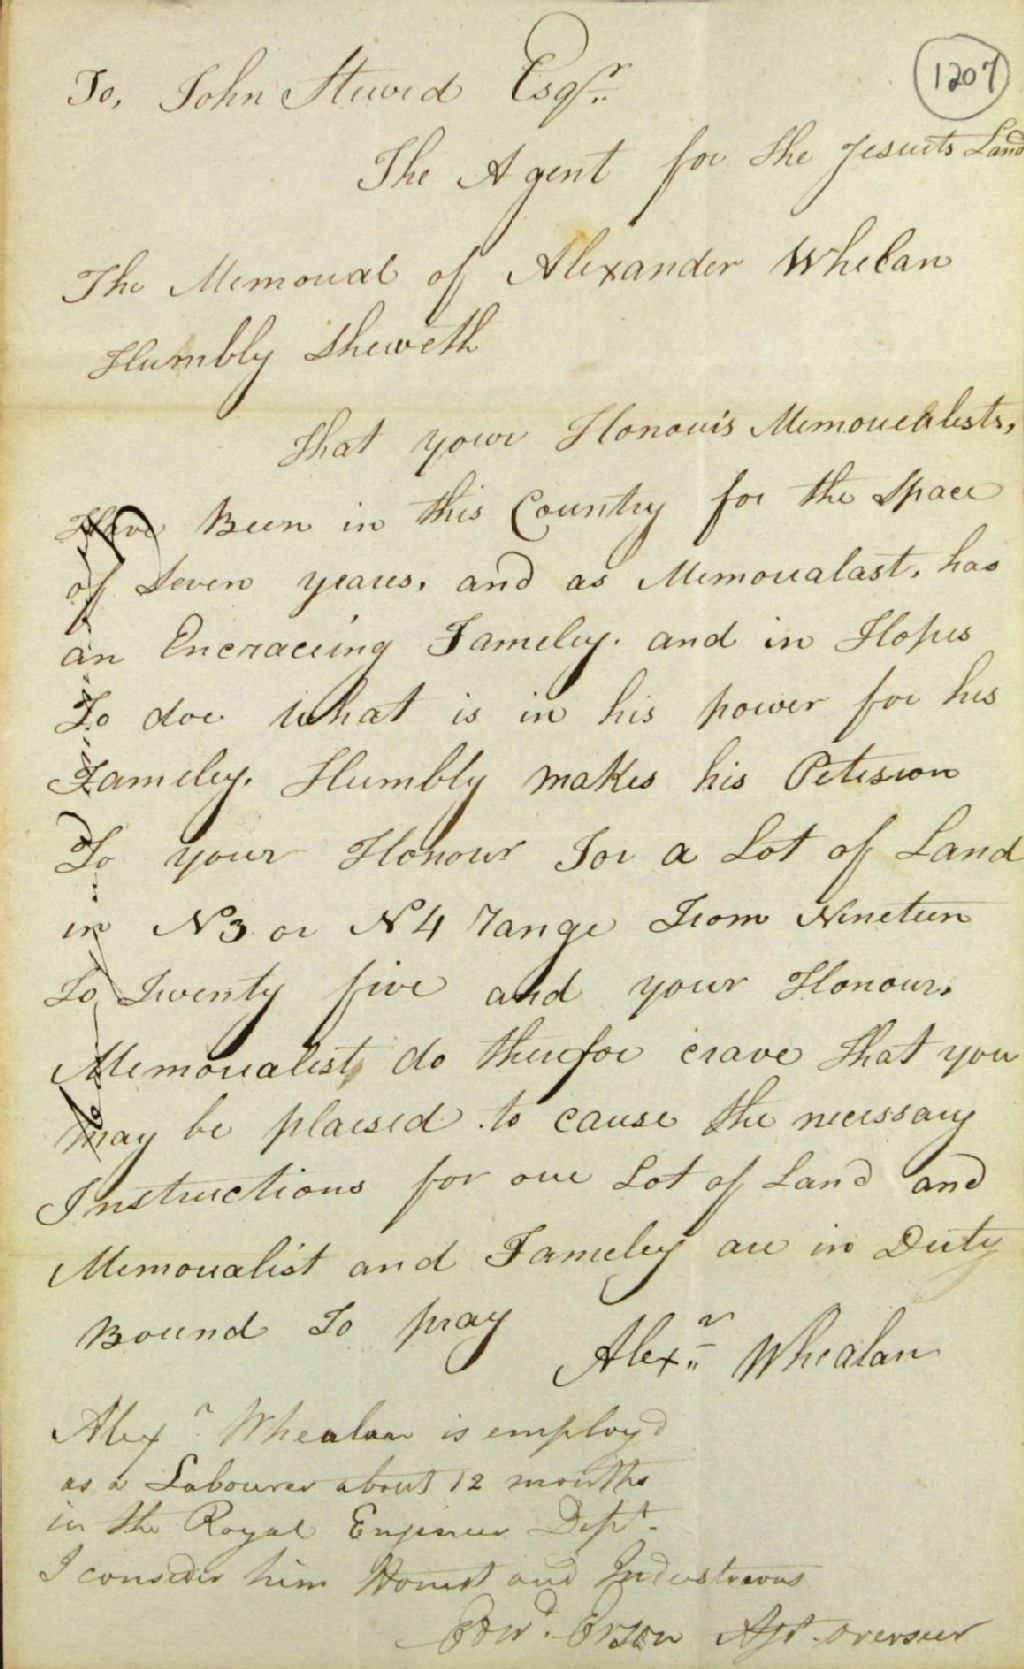 1207
To, John Stuord Esqr.
The Agent for the Jesuets Land
The Memorial of Alexander Whelan
Humbly Sheweth
That your Honours Memorialists,
Have Been in this Country for the Space
of Seven yeares. and as Memorialast. has
an Encraceing Fameley. and in Hopes
To doe what is in his power for his
Fameley. Humbly makes his Petision
To your Honour For a Lot of Land
in N3 or N4 range From Nineteen
To Twenty five and your Honour.
Memorialist do therefor crave that you
may be plaesed to cause the necessary
Instructions for one Lot of Land and
Memorialist and Fameley are in Duty
Bound To pray
Alexr. Whealan
Alexr. Whealan is employd
as a Labourer about 12 months
in the Royal Engineer Dept.
I consider him Honest and Industrious
Edwd. Asst. overseer